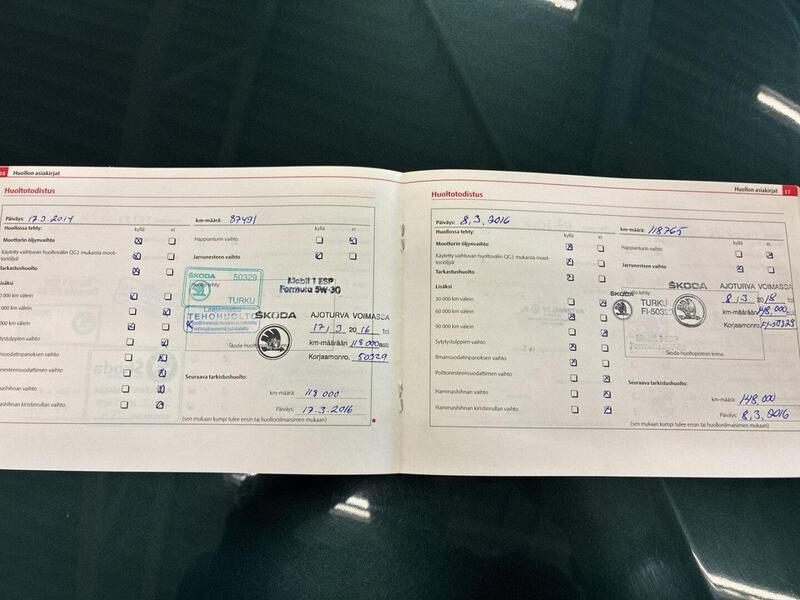 16 Huollon asiakirjat
Huoltotodistus
Päiväys: 17.3.2014 km-määrä: 87491
Huollossa tehty: kyllä ei kyllä ei
Moottorin öljynvaihto
Happianturin vaihto
Käytetty vaihtuvan huoltovälin QG1 mukaista moot-
toriöljyä
Jarrunesteen vaihto
Tarkastushuolto
Lisäksi
000 km välein
000 km välein
000 km välein
Sytytystulppien vaihto
suodatinpanoksen vaihto
onesteensuodattimen vaihto
ashihnan vaihto
ashihnan kiristinrullan vaihto
ŠKODA 50329
TURKU
Laajennettu
TEHOHUOLTO
Mobil 1 ESP
Formula 5W-30
ŠKODA AJOTURVA VOIMASSA
17.3 2016
km-määrään 118 000 asti
Korjaamonro. 50329
Škoda-huol
Seuraava tarkistushuolto:
km-määrä: 118 000
Päiväys: 17.3.2016
(sen mukaan kumpi tulee ensin tai huollonilmaisimen mukaan)
Huollon asiakirjat 17
Huoltotodistus
Päiväys: 8.3.2016 km-määrä: 118765
Huollossa tehty: kyllä ei kyllä ei
Moottorin öljynvaihto
Happianturin vaihto
Käytetty vaihtuvan huoltovälin QG1 mukaista moot-
toriöljyä
Jarrunesteen vaihto
Tarkastushuolto
Lisäksi
30 000 km välein
60 000 km välein
90 000 km välein
Sytytystulppien vaihto
Ilmansuodatinpanoksen vaihto
Polttonesteensuodattimen vaihto
Hammashihnan vaihto
Hammashihnan kiristinrullan vaihto
ŠKODA
TURKU
FI-50329
Mobil 1 ESP
ŠKODA AJOTURVA VOIMASSA
8.3 2018
km-määrään 148,000
Korjaamonro. FI-50329
Skoda-huoltopisteen leima
Seuraava tarkistushuolto:
km-määrä: 148,000
Päiväys: 8.3.2016
(sen mukaan kumpi tulee ensin tai huollonilmaisimen mukaan)